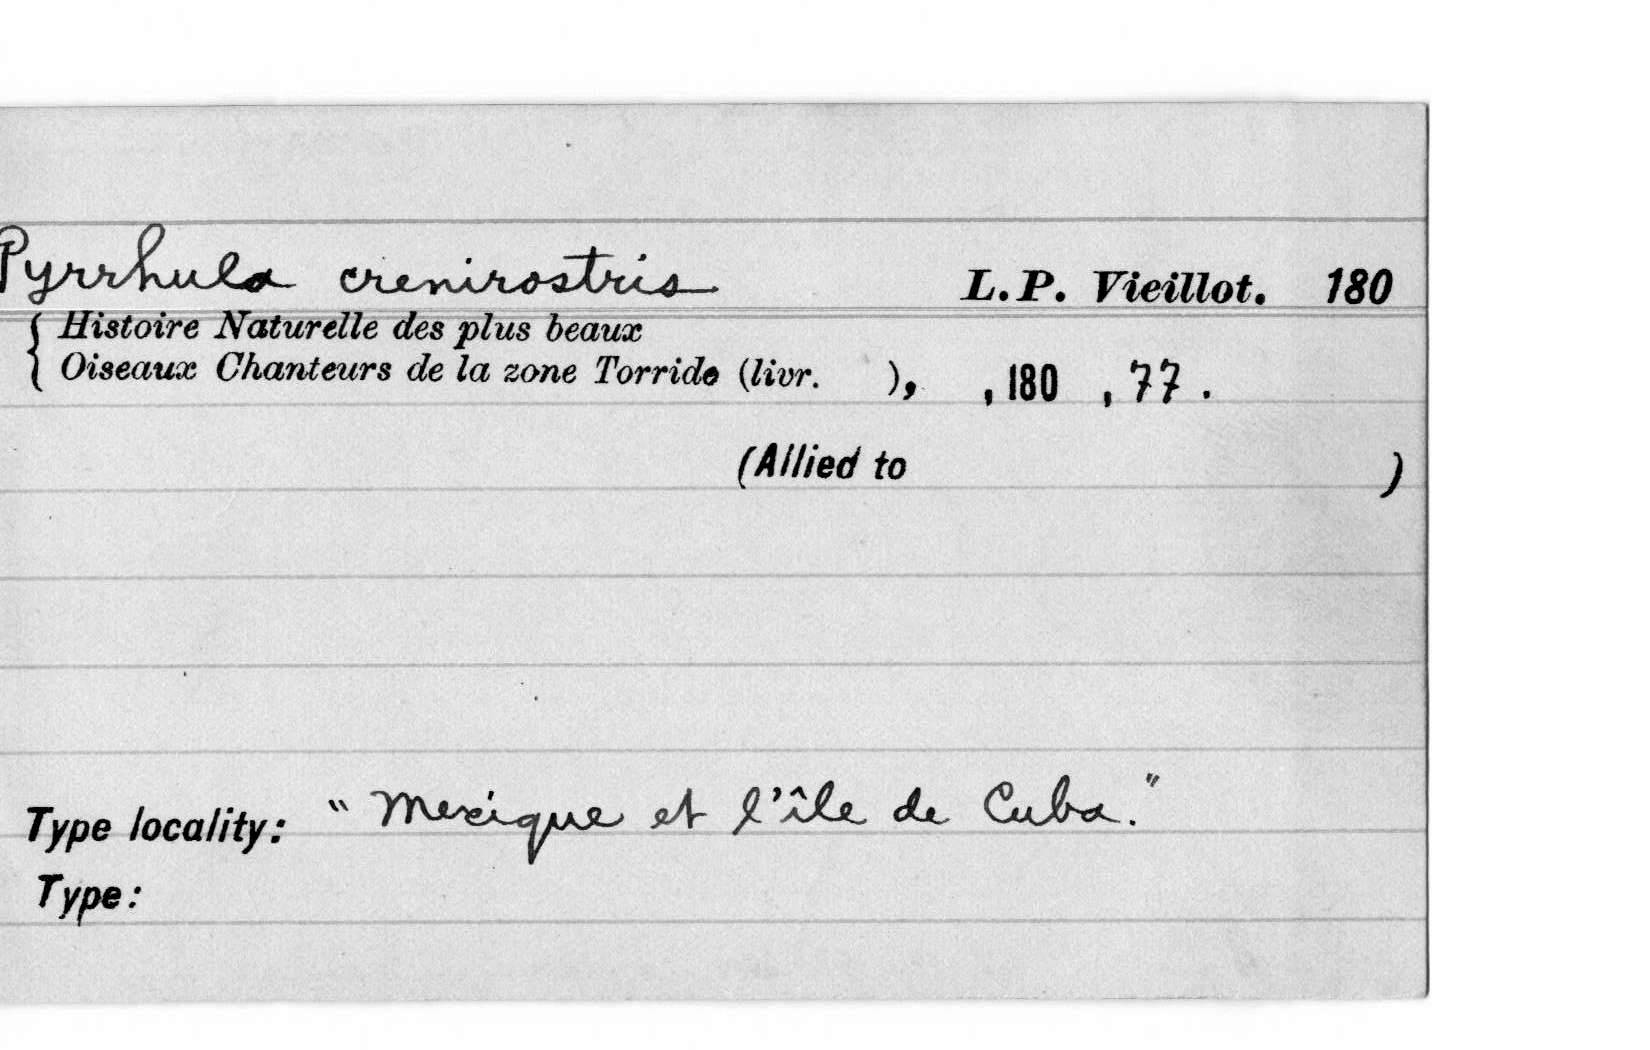 Pyrrhula crenirostris L. P. Vieillot. 180
{ Histoire Naturelle des plus beaux
Oiseaux Chanteurs de la zone Torride (livr. ), , 180 , 77 .
(Allied to )
Type locality: " Mexique et l'île de Cuba."
Type: